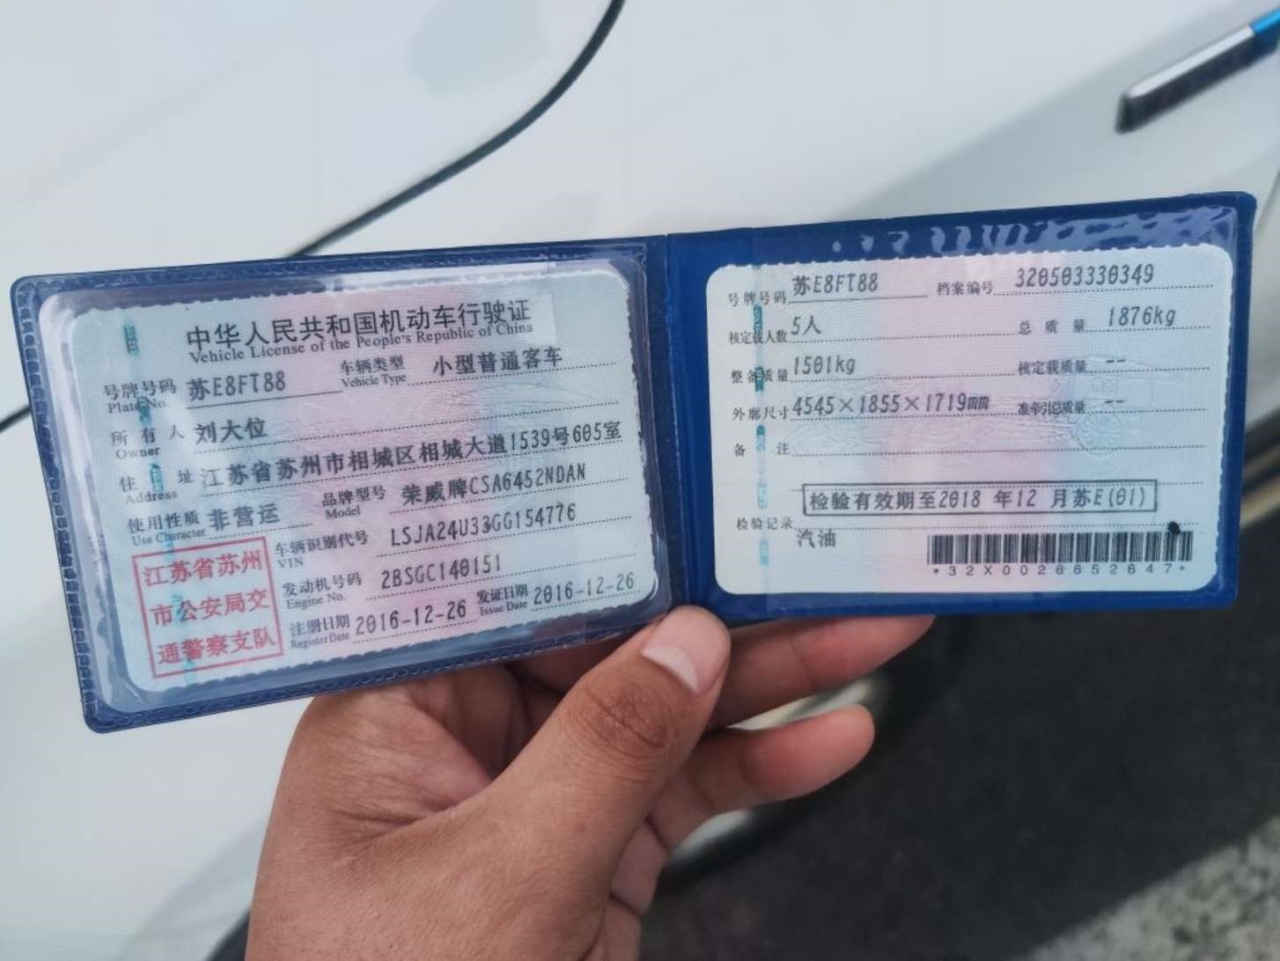 中华人民共和国机动车行驶证
Vehicle License of the People's Republic of China
号牌号码 苏E8FT88 车辆类型 小型普通客车
Plate No. Vehicle Type
所有人 刘大位
Owner
住址 江苏省苏州市相城区相城大道1539号605室
Address
使用性质 非营运 品牌型号 荣威牌CSA6452NDAN
Use Character Model
车辆识别代号 LSJA24U33GG154776
VIN
发动机号码 2BSGC140151
Engine No.
注册日期 2016-12-26 发证日期 2016-12-26
Register Date Issue Date
江苏省苏州
市公安局交
通警察支队
号牌号码 苏E8FT88 档案编号 320503330349
核定载人数 5人 总质量 1876kg
整备质量 1501kg 核定载质量 --
外廓尺寸 4545×1855×1719mm 准牵引总质量 --
备注
检验有效期至2018 年12 月苏E(01)
检验记录
汽油
*32X0026652647*